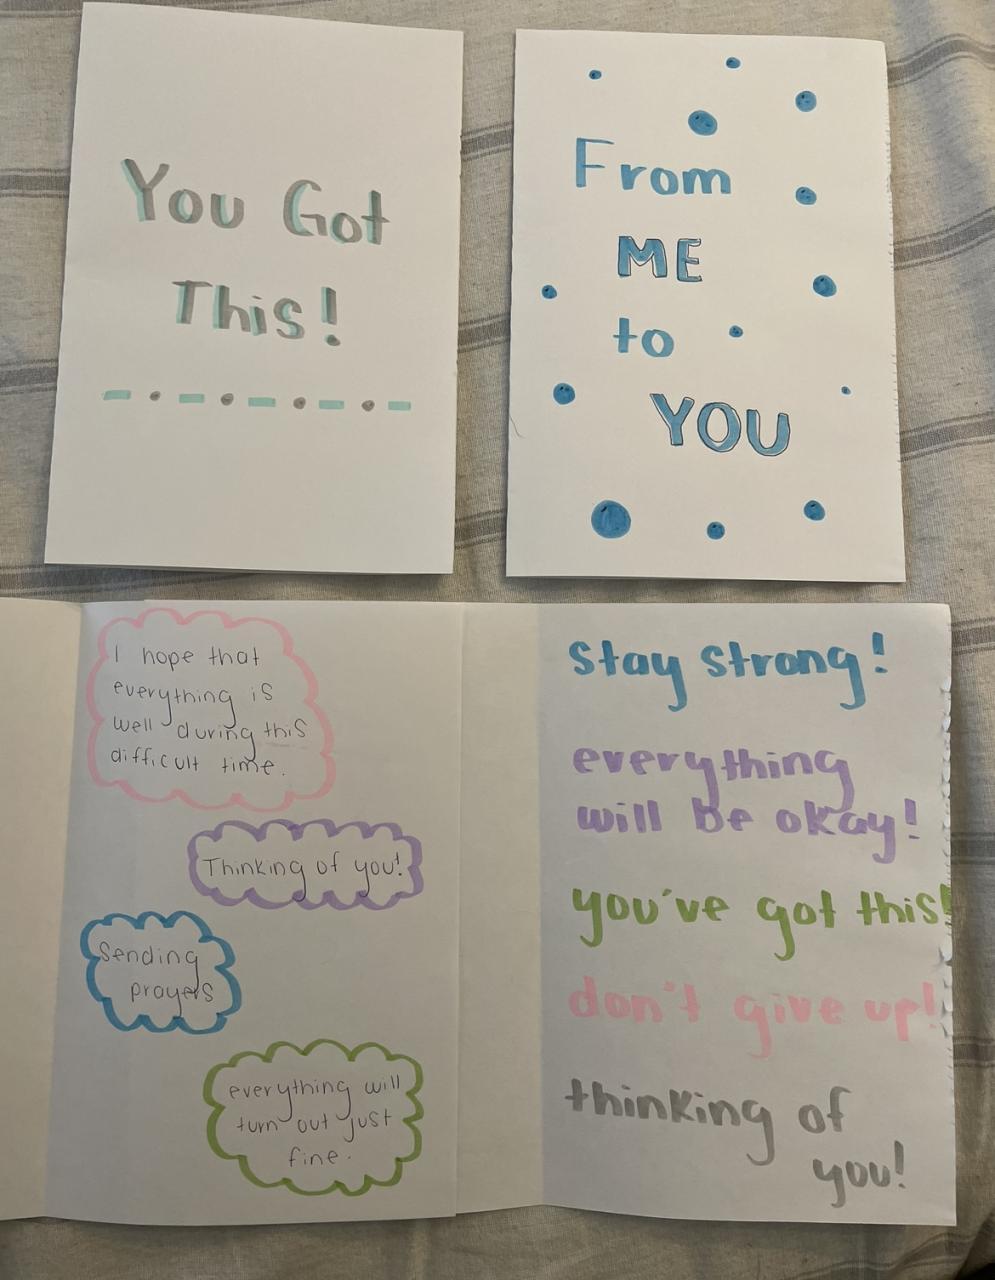 You Got
This!
From
ME
to
YOU
I hope that
everything is
well during this
difficult time.
Thinking of you!
Sending
prayers
everything will
turn out just
fine.
stay strong!
everything
will be okay!
you've got this!
don't give up!
thinking of
you!